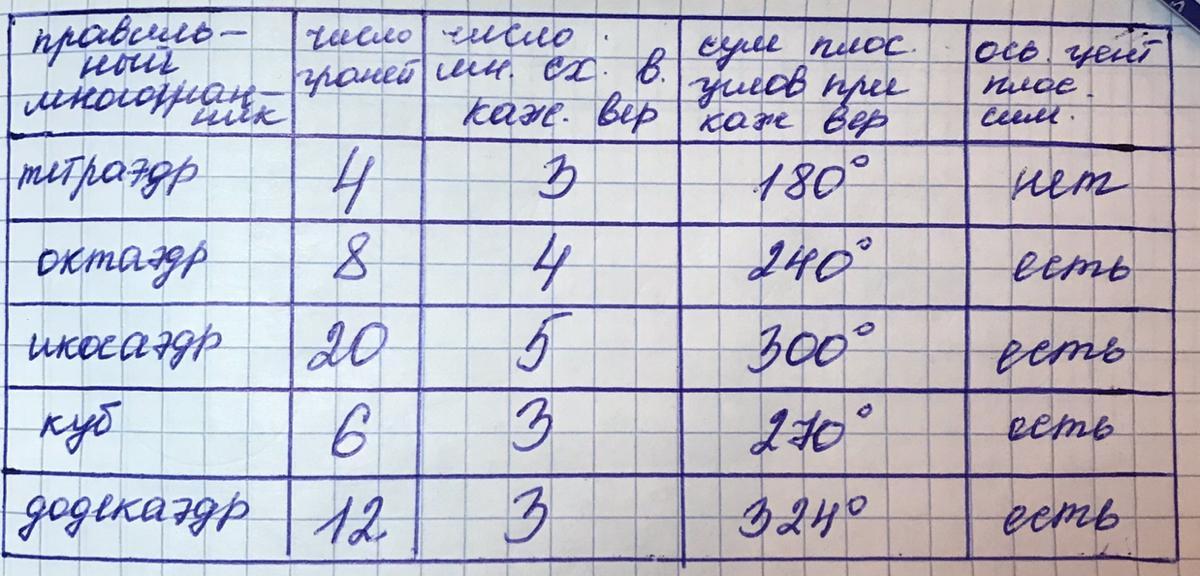 правиль-
ный
многогран-
ник
число
граней
число
мн. сх. в.
каж. вер
сум плос.
углов при
каж вер
ось. цент
плос.
сим.
тетраэдр 4 3 180° нет
октаэдр 8 4 240° есть
икосаэдр 20 5 300° есть
куб 6 3 270° есть
додекаэдр 12 3 324° есть